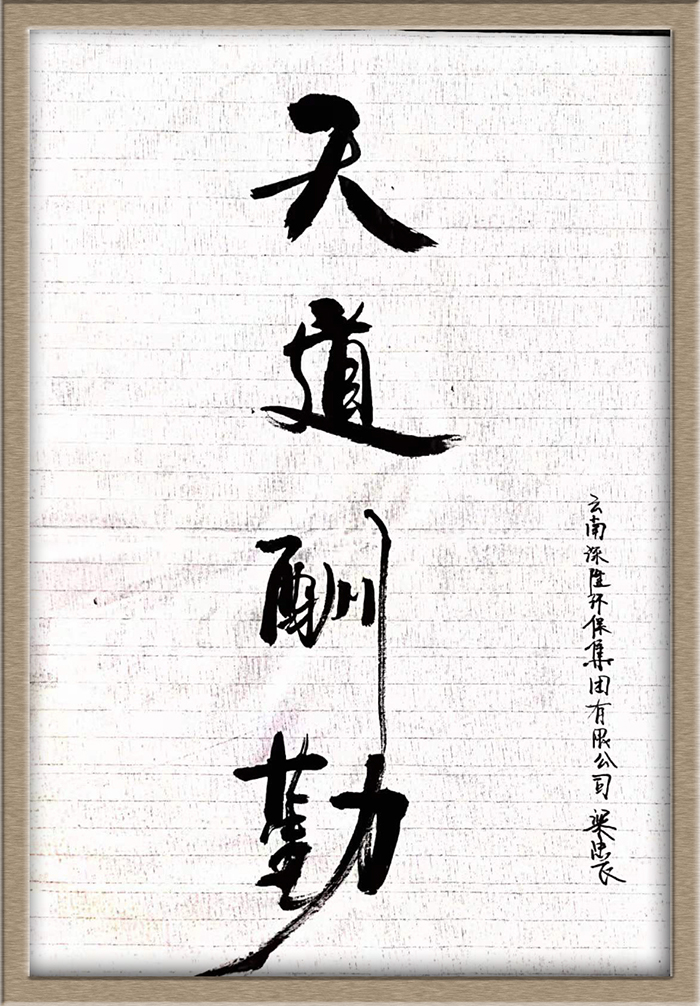 天道酬勤
云南深隆环保集团有限公司 梁